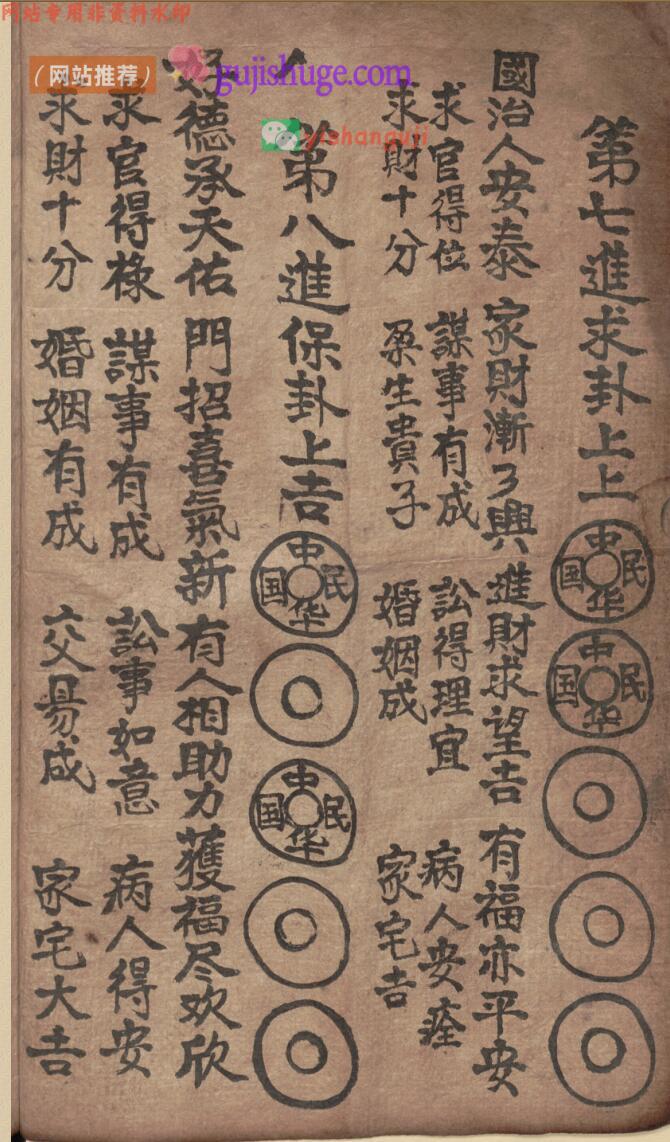 网站专用非资料水印
（网站推荐）
gujishuge.com
yishanguji
第七進求卦上上
中華民国
中華民国
國治人安泰 家財漸了興 進財求望吉 有福亦平安
求官得位 謀事有成 訟得理宜 病人安痊
求財十分 六生貴子 婚姻成 家宅吉
第八進保卦上吉
中华民国
中华民国
好德承天佑 門招喜氣新 有人相助力 獲福尽欢欣
求官得祿 謀事有成 訟事如意 病人得安
求財十分 婚姻有成 交易成 家宅大吉